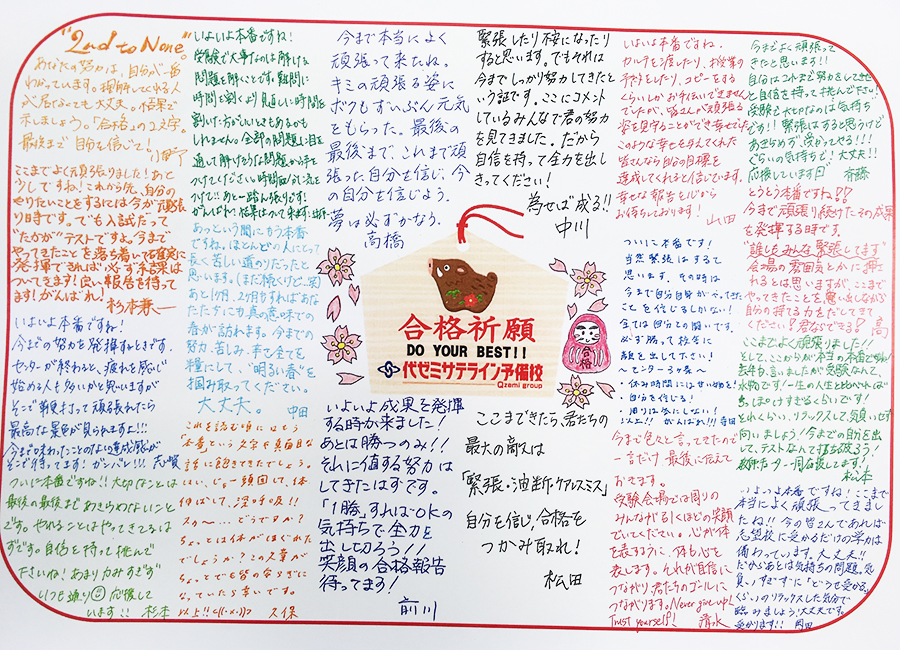 "2nd to None"
あなたの努力は、自分が一番
わかっています。理解してくれる人
が居なくても大丈夫。結果で
示しましょう。「合格」の2文字。
最後まで自分を信じて!
ここまでよく頑張りました!あと
少しですね!これから先、自分の
やりたいことをするには今が頑張
り時です。でも入試だって
"たかが"テストですよ。今まで
やってきたことを落ち着いて確実に
発揮できれば必ず結果は
ついてきます!良い報告を待って
ます!がんばれ!
いよいよ本番ですね!
今までの努力を発揮するときです。
センターが終わると、疲れを感じ
始める人も多いかと思いますが
そこで踏ん張って頑張れたら
最高な景色が見られますよ!!!
今まで味わったことのない達成感が
そこで待ってます!ガンバレ!!!
ついに本番ですね!!大切なことは
最後の最後まであきらめないこと
です。やれることはやってきてるは
ずです。自信を持って挑んで
下さいね!あまり力みすぎず
いつも通り 応援して
います!! 杉本
いよいよ本番ですね!
受験で大事なのは解ける
問題を解くことです。難問に
時間を割くより見直しに時間を
割いた方がいいこともあるかも
しれません。全部の問題に目を
通して解けそうな問題から手を
つけてください。
あっという間にもう本番
ですね。ほとんどの人にとって
長く苦しい道のりだったと
思います。(まだ続くけど…笑)
あと1ヶ月、2ヶ月もすればあな
たたちにも真の意味での
春が訪れます。今までの
努力、苦しみ、辛さ全てを
糧にして、"明るい春"を
掴み取ってください。
大丈夫。 中田
これを読む頃にはもう
「本番」という文字や真面目な
話に飽きてきたでしょう。
はい、じゃー一頭回して、体
伸ばして、深呼吸!!
スゥ〜… どうですか?
ちょっとは体がほぐれた
でしょうか?この文章が
ちょっとでも皆の安らぎに
なっていたら幸いです。
以上!! 久保
今まで本当によく
頑張って来たね。
キミの頑張る姿に
ボクもずいぶん元気
をもらった。最後の
最後まで、これまで頑
張った自分を信じ、今
の自分も信じよう。
夢は必ずかなう。
高橋
緊張したり不安になったり
すると思います。でもそれは
今までしっかり努力してきたと
いう証です。ここにコメント
しているみんなで君の努力
を見てきました。だから
自信を持って全力を出し
きってください!
為せば成る!!
中川
合格祈願
DO YOUR BEST!!
代ゼミサテライン予備校
Qzemi group
合格
いよいよ成果を発揮
する時が来ました!
あとは勝つのみ!!
それに値する努力は
してきたはずです。
「1勝」すればOKの
気持ちで全力を
出し切ろう!!
笑顔の合格報告
待ってます!
前川
ここまできたら、君たちの
最大の敵は
「緊張・油断・ケアレスミス」
自分を信じ、合格を
つかみ取れ!
松田
いよいよ本番ですね。
カルテを渡したり、授業の
予約をしたり、コピーをする
くらいしかお手伝いできません
でしたが、皆さんが頑張る
姿を見守ることができ幸せでした。
このような幸せをくれた
皆さんなら自分の目標を
達成してくれると信じています。
幸せな報告を心から
お待ちしております! 山田
ついに本番です!
当然緊張はすると
思います。その時は
今まで自分自身がやってきた
ことを信じるしかない!
全ては自分との闘いです。
必ず勝って校舎に
顔を出して下さい!
〜センター3ヶ条〜
・休み時間には甘い物を!
・自分を信じる!
・周りは気にしない!
以上!! がんばれ!!! 寺田
今まで色々と言ってきたので
一言だけ最後に伝えて
おきます。
受験会場では周りの
みんなが引くほどの笑顔
でいてください。心が体
を表すように、体も心を
表します。それが自信に
つながり君たちのゴールに
つながります。Never give up!
Trust yourself! 清水
今までよく頑張って
きたと思います!!
自分はコツコツ努力をしてきた
と自信を持って挑んで下さい!
受験で大切なのは気持ち
です!! 緊張はすると思うけど
あきらめず、受かってきる!!!
ぐらいの気持ちで! 大丈夫!!
応援しています
とうとう本番ですね!!
今まで頑張り続けたその成果
を発揮する時です。
"誰もみんな緊張してます"
会場の雰囲気とかに押さ
れるとは思いますが、ここまで
やってきたことを思い出しながら
自分の持てる力をだしてきて
ください!君ならできる!
ここまでよく頑張りました!!
松本
いよいよ本番ですね!ここまで
本当によく頑張ってきまし
たね!! 今の皆さんであれば
志望校に受かるだけの学力は
備わっています。大丈夫!!
だからあとは気持ちの問題。気
負いすぎずに「どうせ受かる。」
くらいのリラックスした気分で
臨みましょう!大丈夫です。
受かります!! 岡田